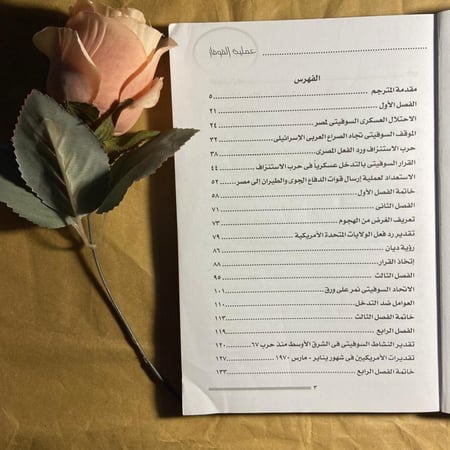 عملية القوقاز
الفهرس
مقدمة المترجم ........ ٥
الفصل الأول ........ ٢١
الاحتلال العسكرى السوفيتى لمصر ........ ٢٤
الموقف السوفيتى تجاه الصراع العربى الإسرائيلى ........ ٣٢
حرب الاستنزاف ورد الفعل المصرى ........ ٣٨
القرار السوفيتى بالتدخل عسكرياً فى حرب الاستنزاف ........ ٤٤
الاستعداد لعملية إرسال قوات الدفاع الجوى والطيران إلى مصر ..... ٥٢
خاتمة الفصل الأول ........ ٥٨
الفصل الثانى ........ ٧١
تعريف الغرض من الهجوم ........ ٧٣
تقدير رد فعل الولايات المتحدة الأمريكية ........ ٧٩
رؤية ديان ........ ٨٦
إتخاذ القرار ........ ٨٨
الفصل الثالث ........ ٩٥
الاتحاد السوفيتى نمر على ورق ........ ١٠١
العوامل ضد التدخل ........ ١١٠
خاتمة الفصل الثالث ........ ١١٣
الفصل الرابع ........ ١١٩
تقدير النشاط السوفيتى فى الشرق الأوسط منذ حرب ٦٧ ........ ١٢٠
تقديرات الأمريكيين فى شهور يناير - مارس ١٩٧٠ ........ ١٢٧
خاتمة الفصل الرابع ........ ١٣٣
٣